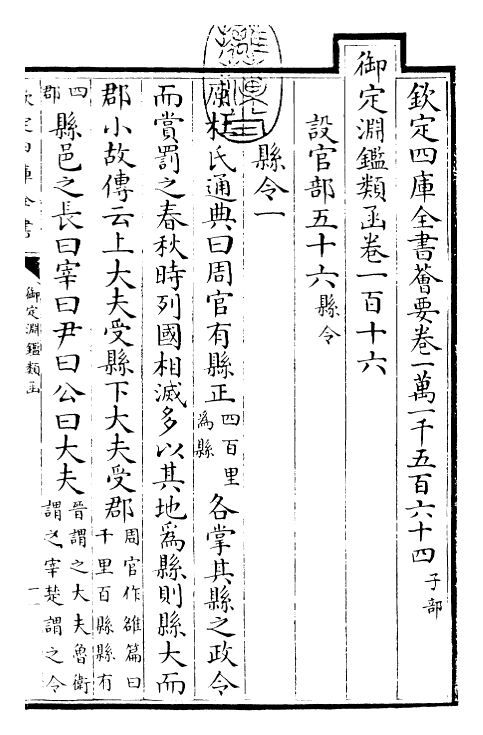 欽定四庫全書薈要卷一萬一千五百六十四 子部
御定淵鑑類函卷一百十六
設官部五十六 縣令
縣令一
杜氏通典曰周官有縣正 四百里為縣 各掌其縣之政令
而賞罰之春秋時列國相滅多以其地為縣則縣大而
郡小故傳云上大夫受縣下大夫受郡 周官作雒篇曰千里百縣縣有
四郡 縣邑之長曰宰曰尹曰公曰大夫 晉謂之大夫魯衛謂之宰楚謂之令
欽定四庫全書
御定淵鑑類函
一